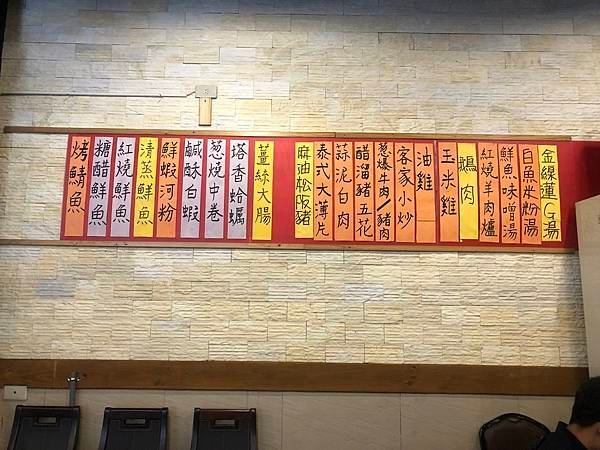 金線蓮G湯
白魚米粉湯
鮮魚味噌湯
紅燒羊肉爐
鵝肉
玉米雞
油雞
客家小炒
葱爆牛肉/豬肉
醋溜豬五花
蒜泥白肉
泰式大薄片
麻油松阪豬
薑絲大腸
塔香蛤蠣
葱燒中卷
鹹酥白蝦
鮮蝦河粉
清蒸鮮魚
紅燒鮮魚
糖醋鮮魚
烤鯖魚